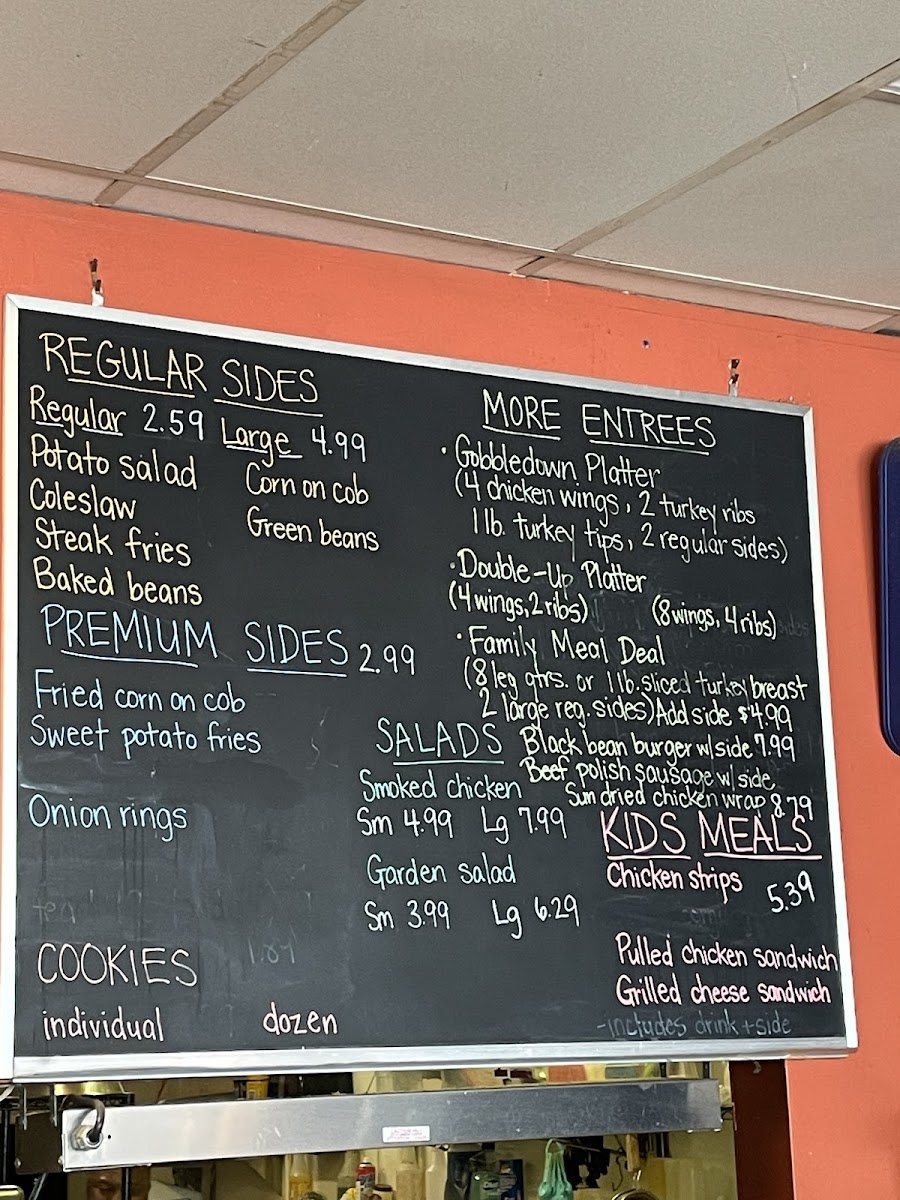 REGULAR SIDES
Regular 2.59 Large 4.99
Potato salad
Corn on cob
Coleslaw
Green beans
Steak fries
Baked beans
PREMIUM SIDES 2.99
Fried corn on cob
Sweet potato fries
Onion rings
tea
COOKIES
individual
dozen
SALADS
Smoked chicken
Sm 4.99 Lg 7.99
Garden salad
Sm 3.99 Lg 6.29
MORE ENTREES
• Gobbledown Platter
(4 chicken wings, 2 turkey ribs
1 lb. turkey tips, 2 regular sides)
• Double-Up Platter
(4 wings, 2 ribs) (8 wings, 4 ribs)
• Family Meal Deal
(8 leg qtrs. or 1 lb. sliced turkey breast
2 large reg. sides) Add side $4.99
Black bean burger w/side 7.99
Beef polish sausage w/side
Sun dried chicken wrap 8.79
KIDS MEALS
Chicken strips 5.39
Pulled chicken sandwich
Grilled cheese sandwich
-includes drink + side